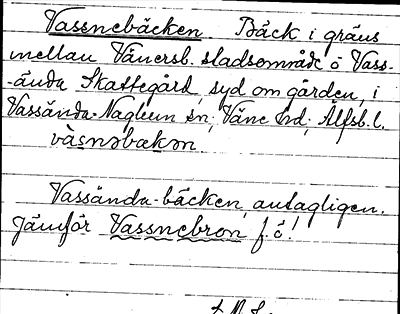 Vassnebäcken. Bäck i gräns
mellan Vänersb. stadsområde o Vass-
-ända Skattegård, syd om gården, i
Vassända-Naglum sn, Väne hd, Älfsb. l.
vàsnəbækən
Vassända-bäcken, antagligen.
Jämför Vassnebron f. ö!